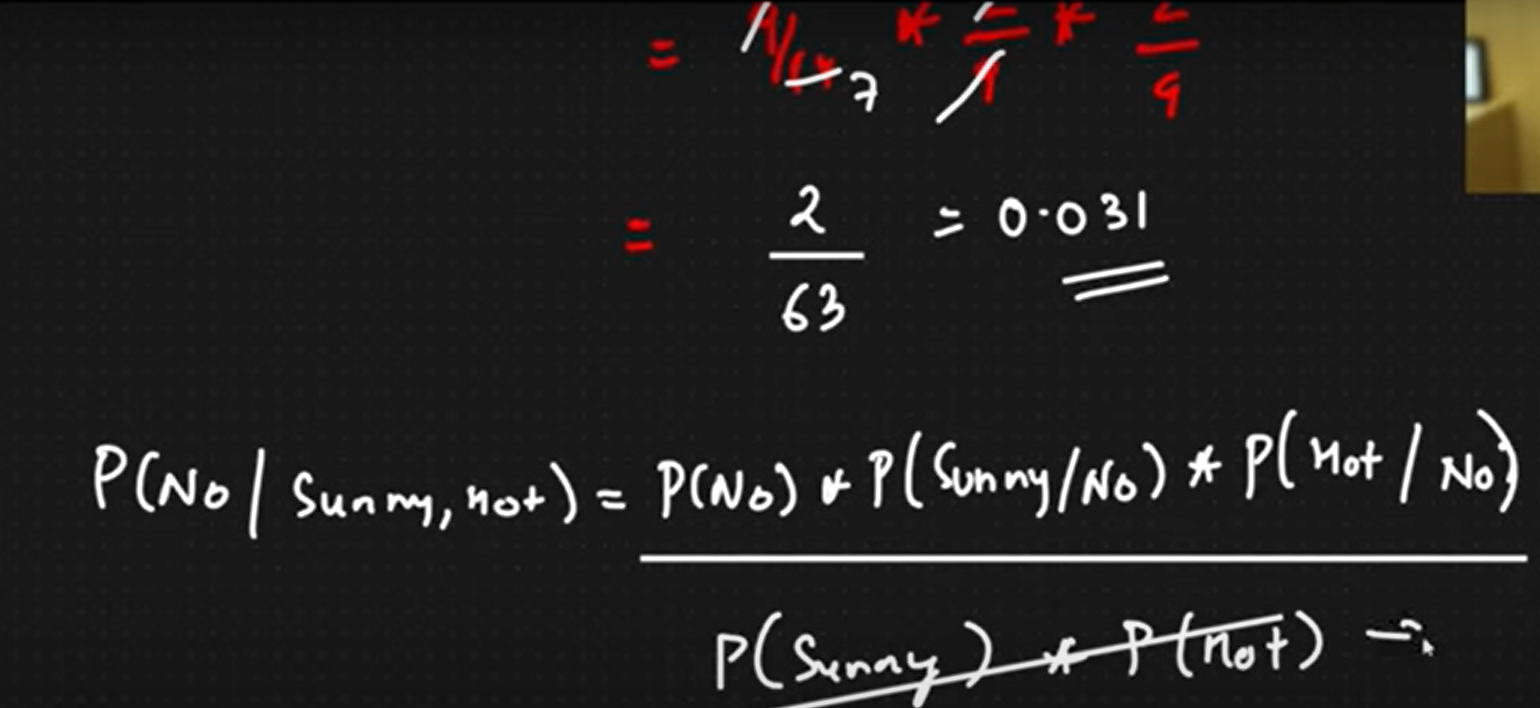 = 9/14 7 * 2/9 * 2/9
= 2/63 = 0.031
P(No | Sunny, Hot) = P(No) * P(Sunny/No) * P(Hot / No)
P(Sunny) * P(Hot) →